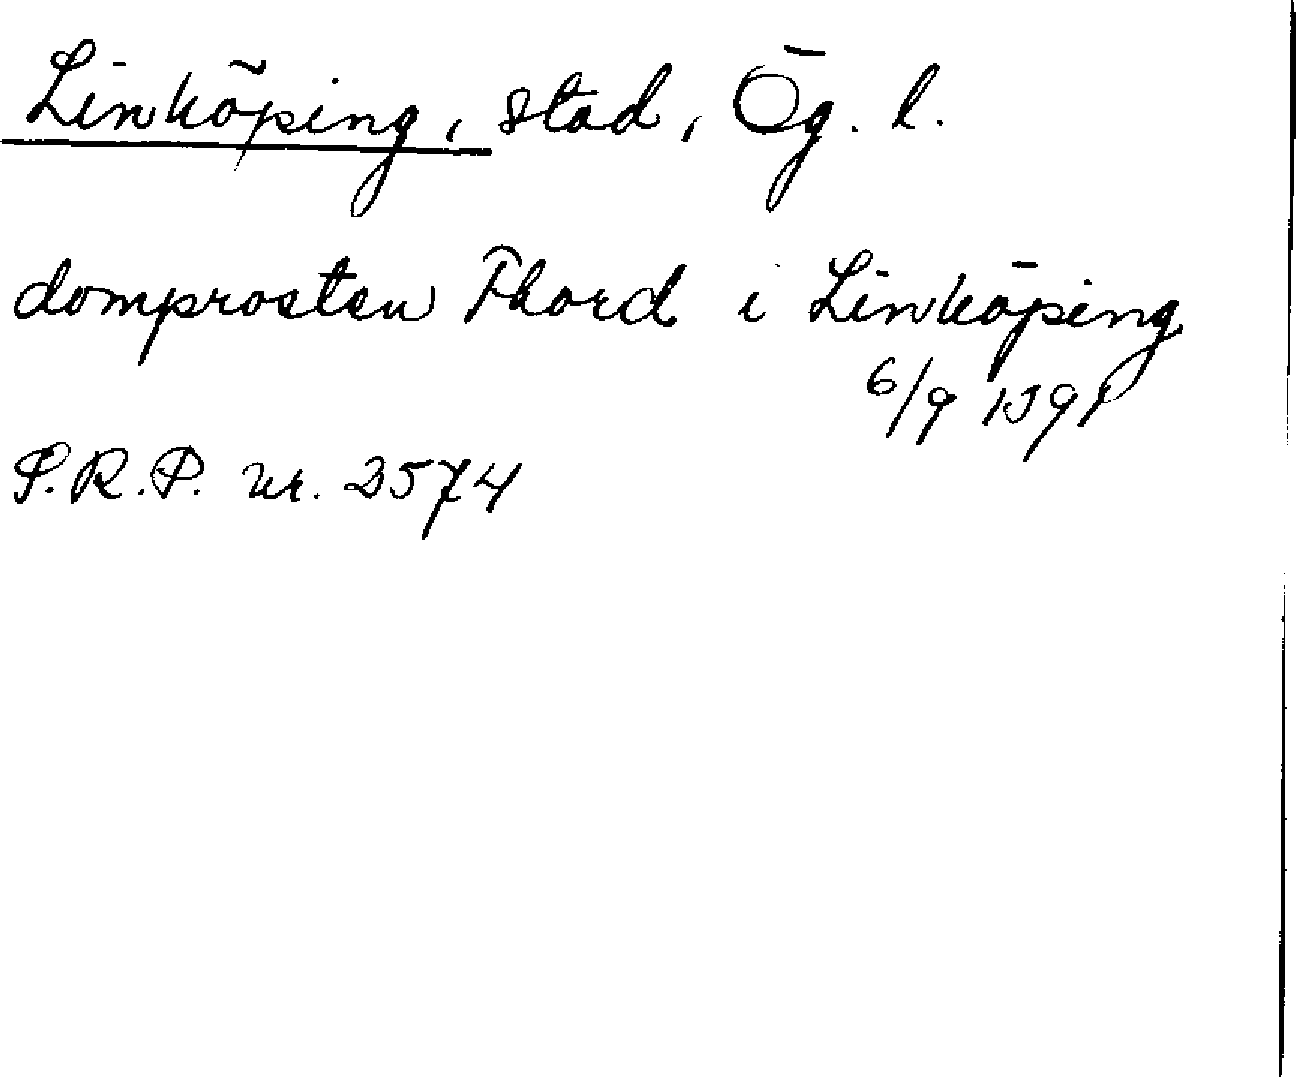 Linköping, stad, Ög. l.
domprosten Thord i Linköping
6/9 1391
S.R.P. nr. 2574